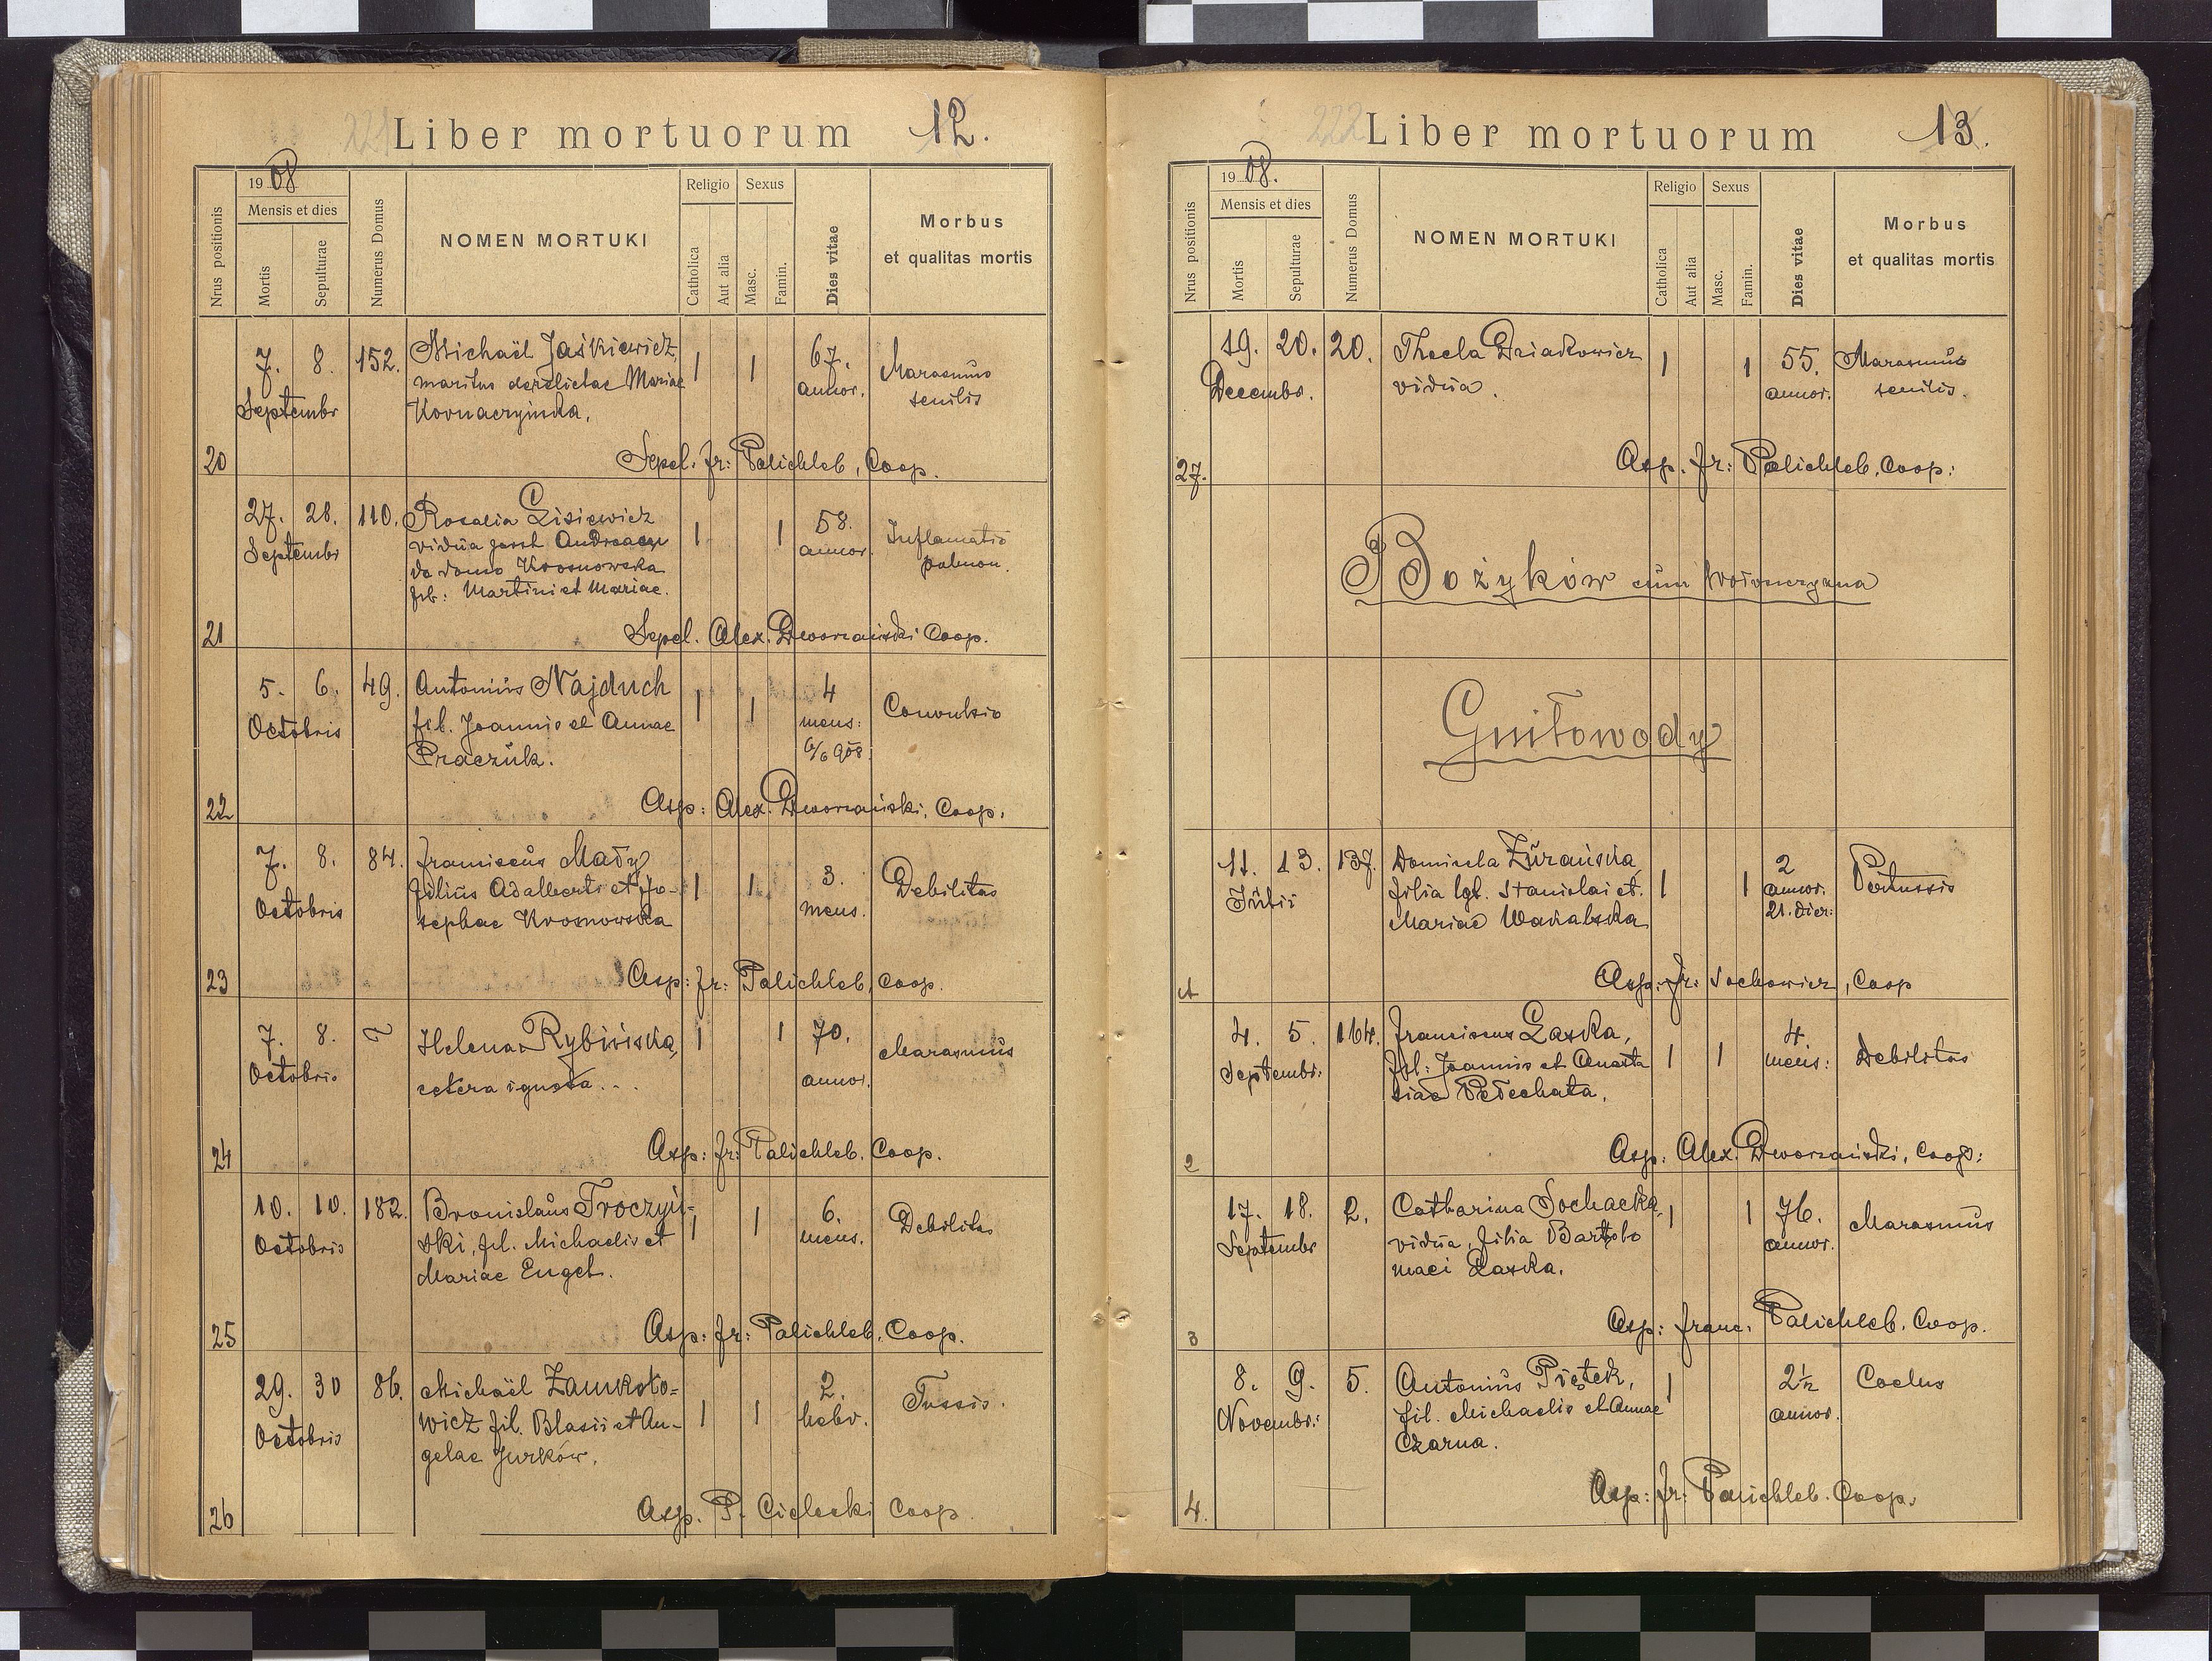 221 Liber mortuorum 12.
1908
Mensis et dies
Nrus positionis
Mortis
Sepulturae
Numerus Domus
NOMEN MORTUKI
Religio
Catholica
Aut alia
Sexus
Masc.
Famin.
Dies vitae
Morbus
et qualitas mortis
7. 8. 152. Michaël Jaśkiewicz, 1 1 67. Marasmus
Septembr maritus derelictae Mariae annor. senilis
Kornaczyńska.
20 Sepel. Fr: Palichleb, Coop.
27. 28. 110. Rosalia Lisiewicz 1 1 58. Inflamatio
Septembr vidua post Andream annor. pulmon.
de domo Krosnowska
fil: Martini et Mariae.
21 Sepel. Alex. Dworzański Coop.
5. 6. 49. Antonius Najduch 1 1 4 Convulsio
Octobris fil. Joannis et Annae mens:
Praczuk. 6/6 908.
22 Asp: Alex. Dworzański, Coop.
7. 8. 84. Franciscus Mały 1 1 3. Debilitas
Octobris filius Adalberti et Jo- mens.
sephae Krosnowska
23 Asp: Fr: Palichleb, Coop.
7. 8. ? Helena Rybińska, 1 1 70. Marasmus
Octobris cetera ignota... annor.
24 Asp: Fr: Palichleb. Coop.
10. 10. 182. Bronislaus Troczyń- 1 1 6. Debilitas
Octobris ski, fil. Michaelis et mens.
Mariae Engel.
25 Asp: Fr: Palichleb. Coop.
29. 30 86. Michaël Zamkoto= 1 1 2. Tussis.
Octobris wicz fil. Blasii et An- hebd.
gelae Jurków.
26 Asp. P. Cielecki Coop.
222 Liber mortuorum 13.
1908.
Mensis et dies
Nrus positionis
Mortis
Sepulturae
Numerus Domus
NOMEN MORTUKI
Religio
Catholica
Aut alia
Sexus
Masc.
Famin.
Dies vitae
Morbus
et qualitas mortis
19. 20. 20. Thecla Dziadkowicz 1 1 55. Marasmus
Decembr. vidua. annor. senilis.
27. Asp. Fr: Palichleb. Coop:
Bożyków cum
Gniłowody
11. 13. 137. Domicela Żurańska 1 1 2 Pertussis
Julii filia lgt. Stanislai et annor.
Mariae 21. dier:
1 Asp: Fr: Sochowicz, Coop
4. 5. 164. Franciscus Laska, 1 1 4 Debilitas
Septembr: fil: Joannis et Anasta mens:
siae Pełechata.
2 Asp: Alex. Dworzański, Coop:
17. 18. 2. Catharina Sochacka, 1 1 76. Marasmus
Septembr vidua, filia Bartolo annor.
maei Laska.
3 Asp: Franc. Palichleb. Coop.
8. 9. 5. Antonius Piętek, 1 2½ Coelus
Novembr: fil. Michaelis et Annae annor.
Czarna.
4. Asp: Fr: Palichleb. Coop.